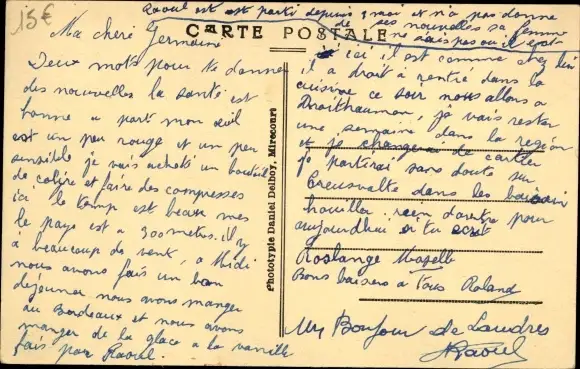 15€
Raoul est est parti depuis 3 moi et n'a pas donne
de ses nouvelles sa femme
ne sais pas ou il etat
CARTE POSTALE
Ma chere Germaine
Deux mots pour te donner
des nouvelles la santé est
bonne a part mon œil
est un peu rouge et un peu
sensible je vais acheté un bouteille
de colire et faire des compresses
ici le temp est beaux mes
le pays est a 300 metres il y
a beaucoup de vent, a Midi
nous avons fais un bon
dejeuner nous avons manger
au Bordeaux et nous avons
manger de la glace a la vanille
fais par Raoul.
Phototypie Daniel Delboy, Mirecourt
ici il est comme chez lui
il a droit a rentré dans la
cuisine ce soir nous allons a
je vais rester
une semaine dans la region
et je changerai de cartier
je partirai sans doute sur
dans les bassin
houiller rien d'autre pour
aujourdhui
Roslange Moselle
Bons baisers a Tous Roland
Un Bonjour de Landres
Raoul